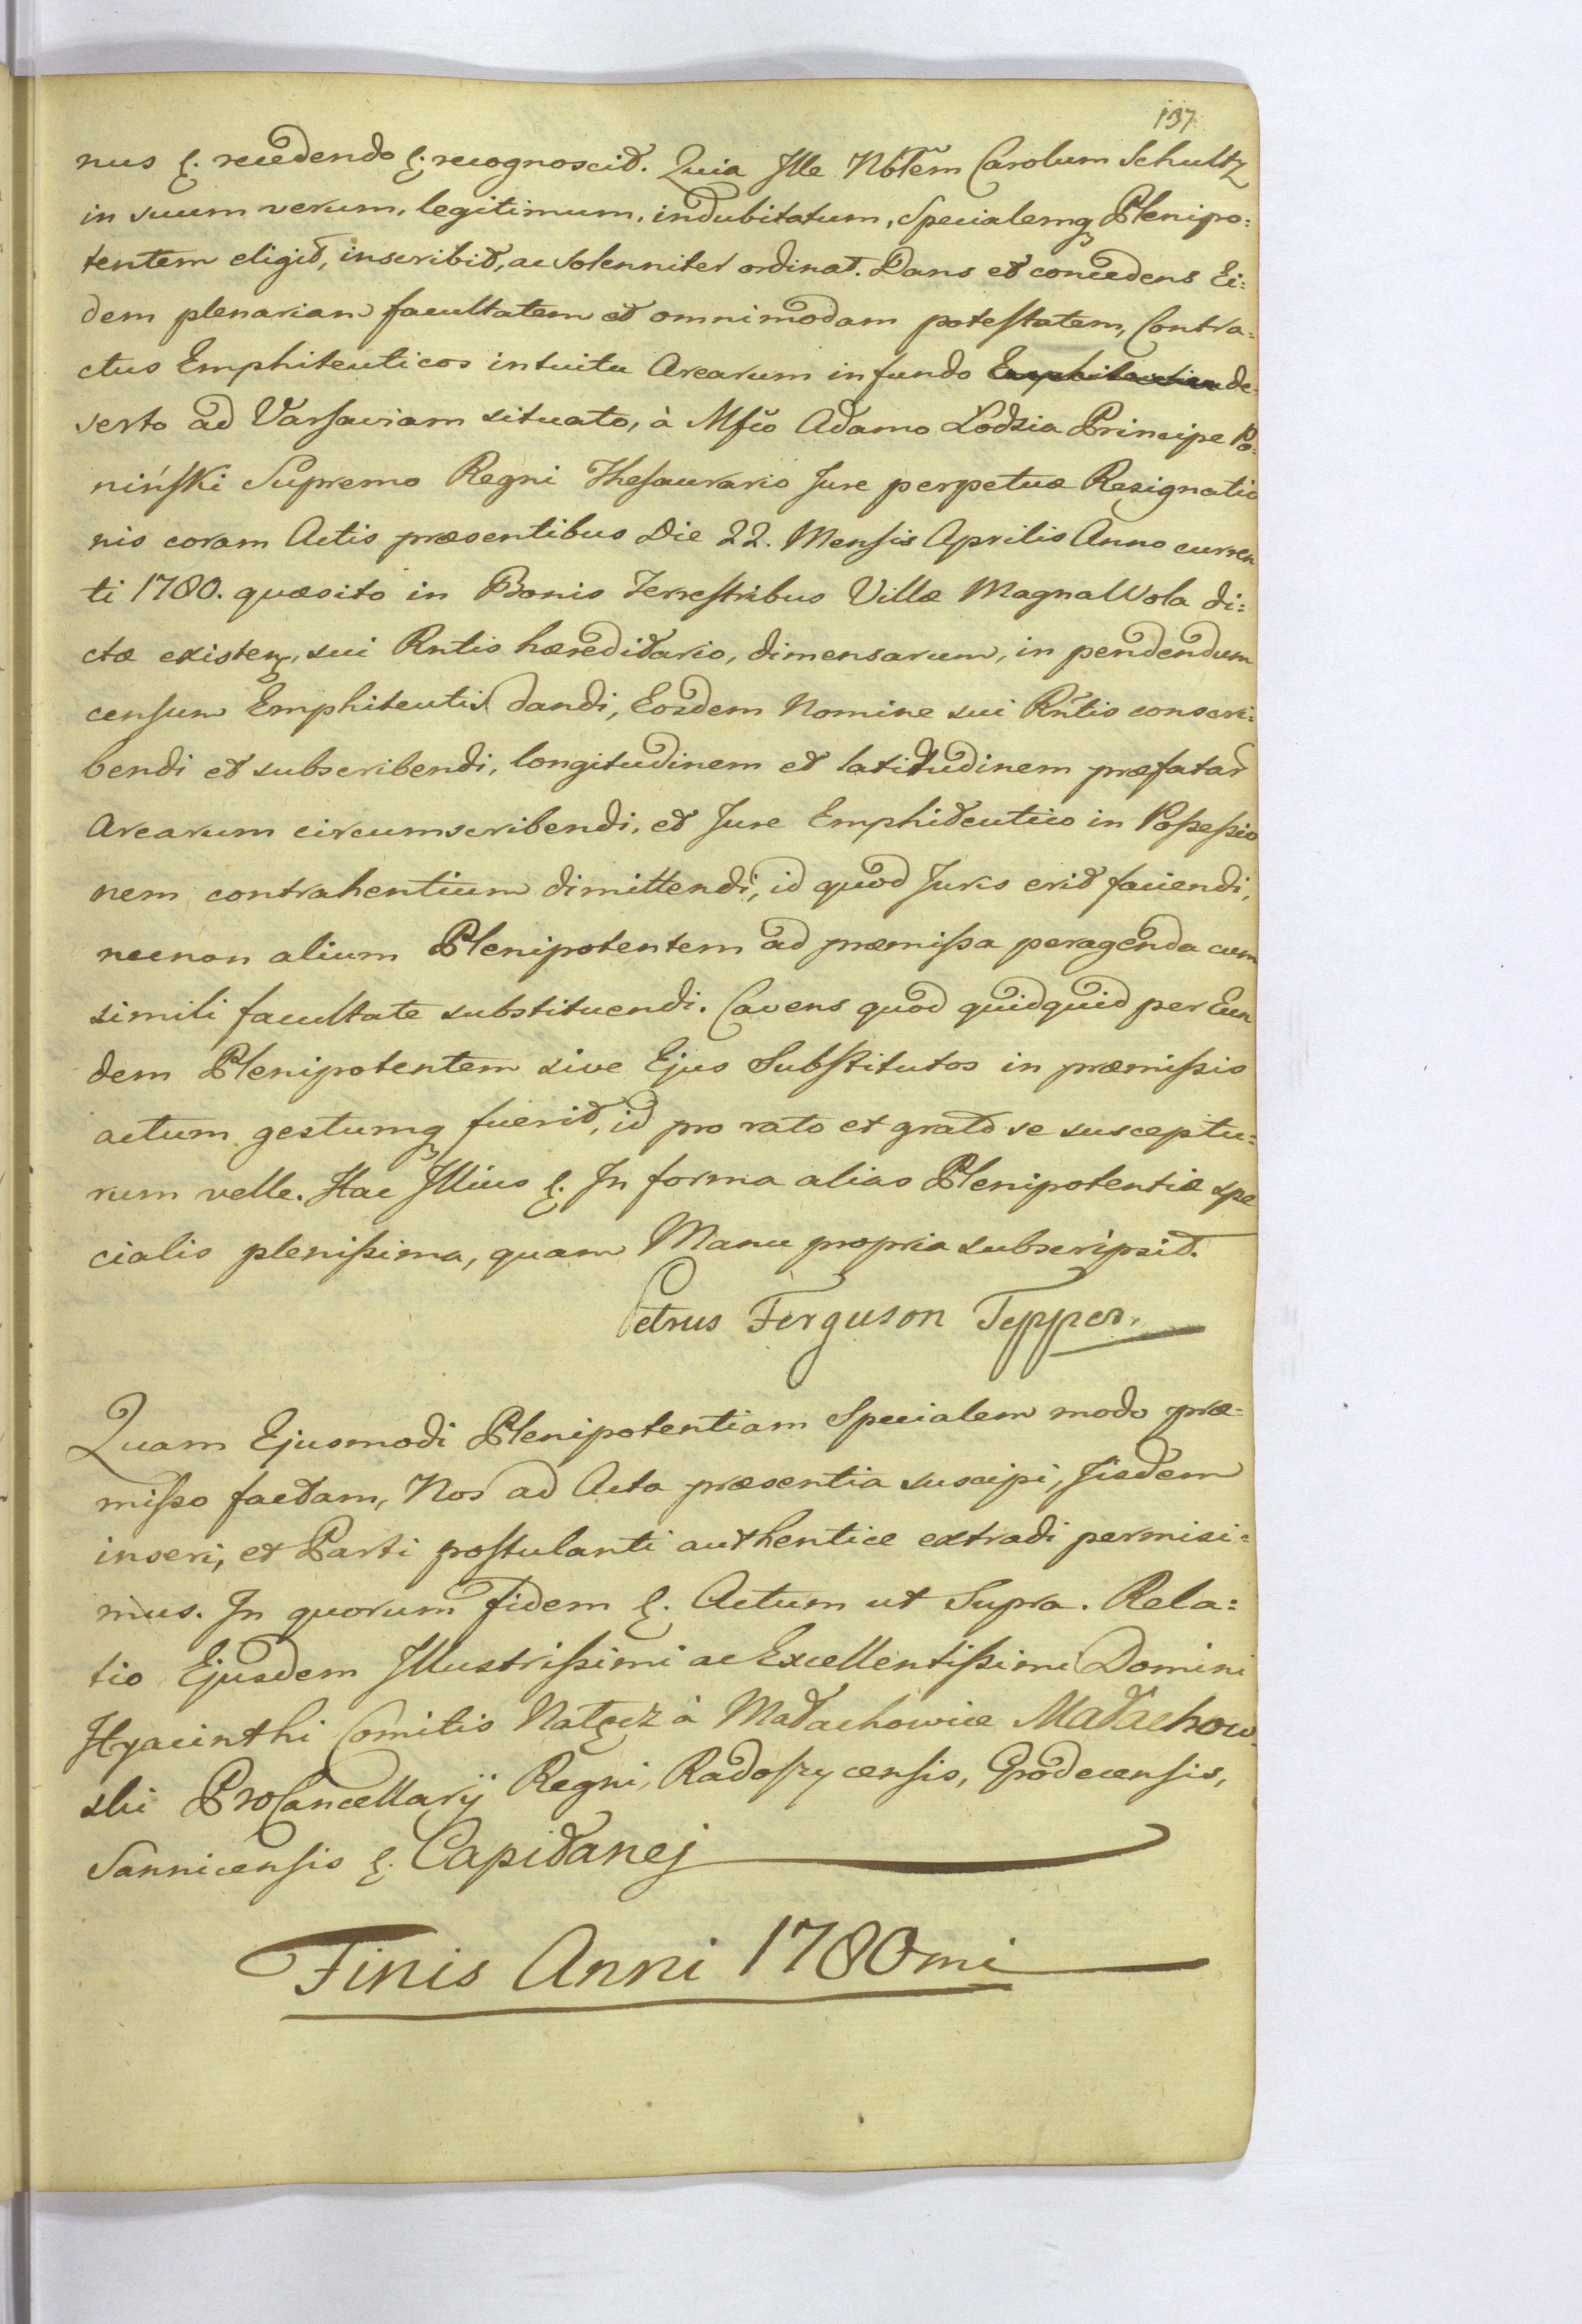 137
nus &. recedendo &. recognoscit. Quia Ille Nbłem Carolum Schultz
in suum verum, legitimum, indubitatum, Specialemq Plenipo:
tentem eligit, inscribit, ac Solenniter ordinat. Dans et concedens Ei:
dem plenariam facultatem et omnimodam potestatem, Contra:
ctus Emphiteuticos intuitu Arearum in fundo de:
serto ad Varsaviam situato, à Mfco Adamo Lodzia Principe Po:
niński Supremo Regni Thesaurario Jure perpetuæ Resignatio
nis coram Actis præsentibus Die 22. Mensis Aprilis Anno curren
ti 1780. quæsito in Bonis Terrestribus Villæ Magna Wola di:
ctæ existen, sui Rntis hæreditario, dimensarum, in pendendum
censum Emphiteutis dandi, Eosdem Nomine sui Rntis conscri:
bendi et subscribendi, longitudinem et latitudinem præfatar
Arearum circumscribendi, et Jure Emphiteutico in Possessio
nem contrahentium dimittendi, id quod Juris erit faciendi,
necnon alium Plenipotentem ad præmissa peragenda cum
simili facultate substituendi. Cavens quod quidquid per Eun
dem Plenipotentem sive Ejus Substitutos in præmissis
actum gestumq fuerit, id pro rato et grato se susceptu:
rum velle. Hac Illius &. In forma alias Plenipotentiæ spe
cialis plenissima, quam Manu propria subscripsit.
Petrus Ferguson Tepper.
Quam Ejusmodi Plenipotentiam Specialem modo præ:
misso factam, Nos ad Acta præsentia suscipi, Iisdem
inseri, et Parti postulanti authentice extradi permisi:
mus. In quorum fidem &. Actum ut Supra. Rela:
tio Ejusdem Illustrissimi ac Excellentissimi Domini
Hyacinthi Comitis Natęcz à Małachowice Małachow
ski ProCancellarij Regni, Radoszycensis, Grodecensis,
Sannicensis &. Capitanej
Finis Anni 1780mi